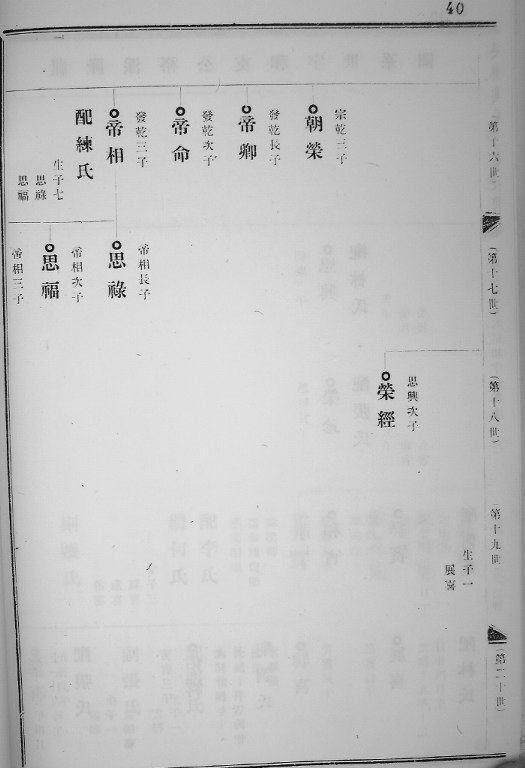 40
第十六世
宗乾三子
朝榮
發乾長子
帝卿
發乾次子
帝命
發乾三子
帝相
配練氏
生子七
思祿
思福
(第十七世)
帝相長子
思祿
帝相次子
思福
帝相三子
(第十八世)
思興次子
榮經
第十九世
生子一
展喜
(第二十世)